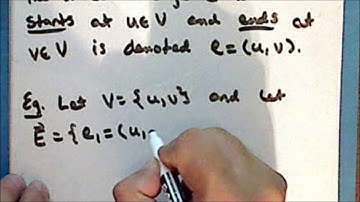 starts at u∈V and ends at
v∈V is denoted e=(u,v).
Eg. Let V={u,v} and let
E⃗={e₁=(u,